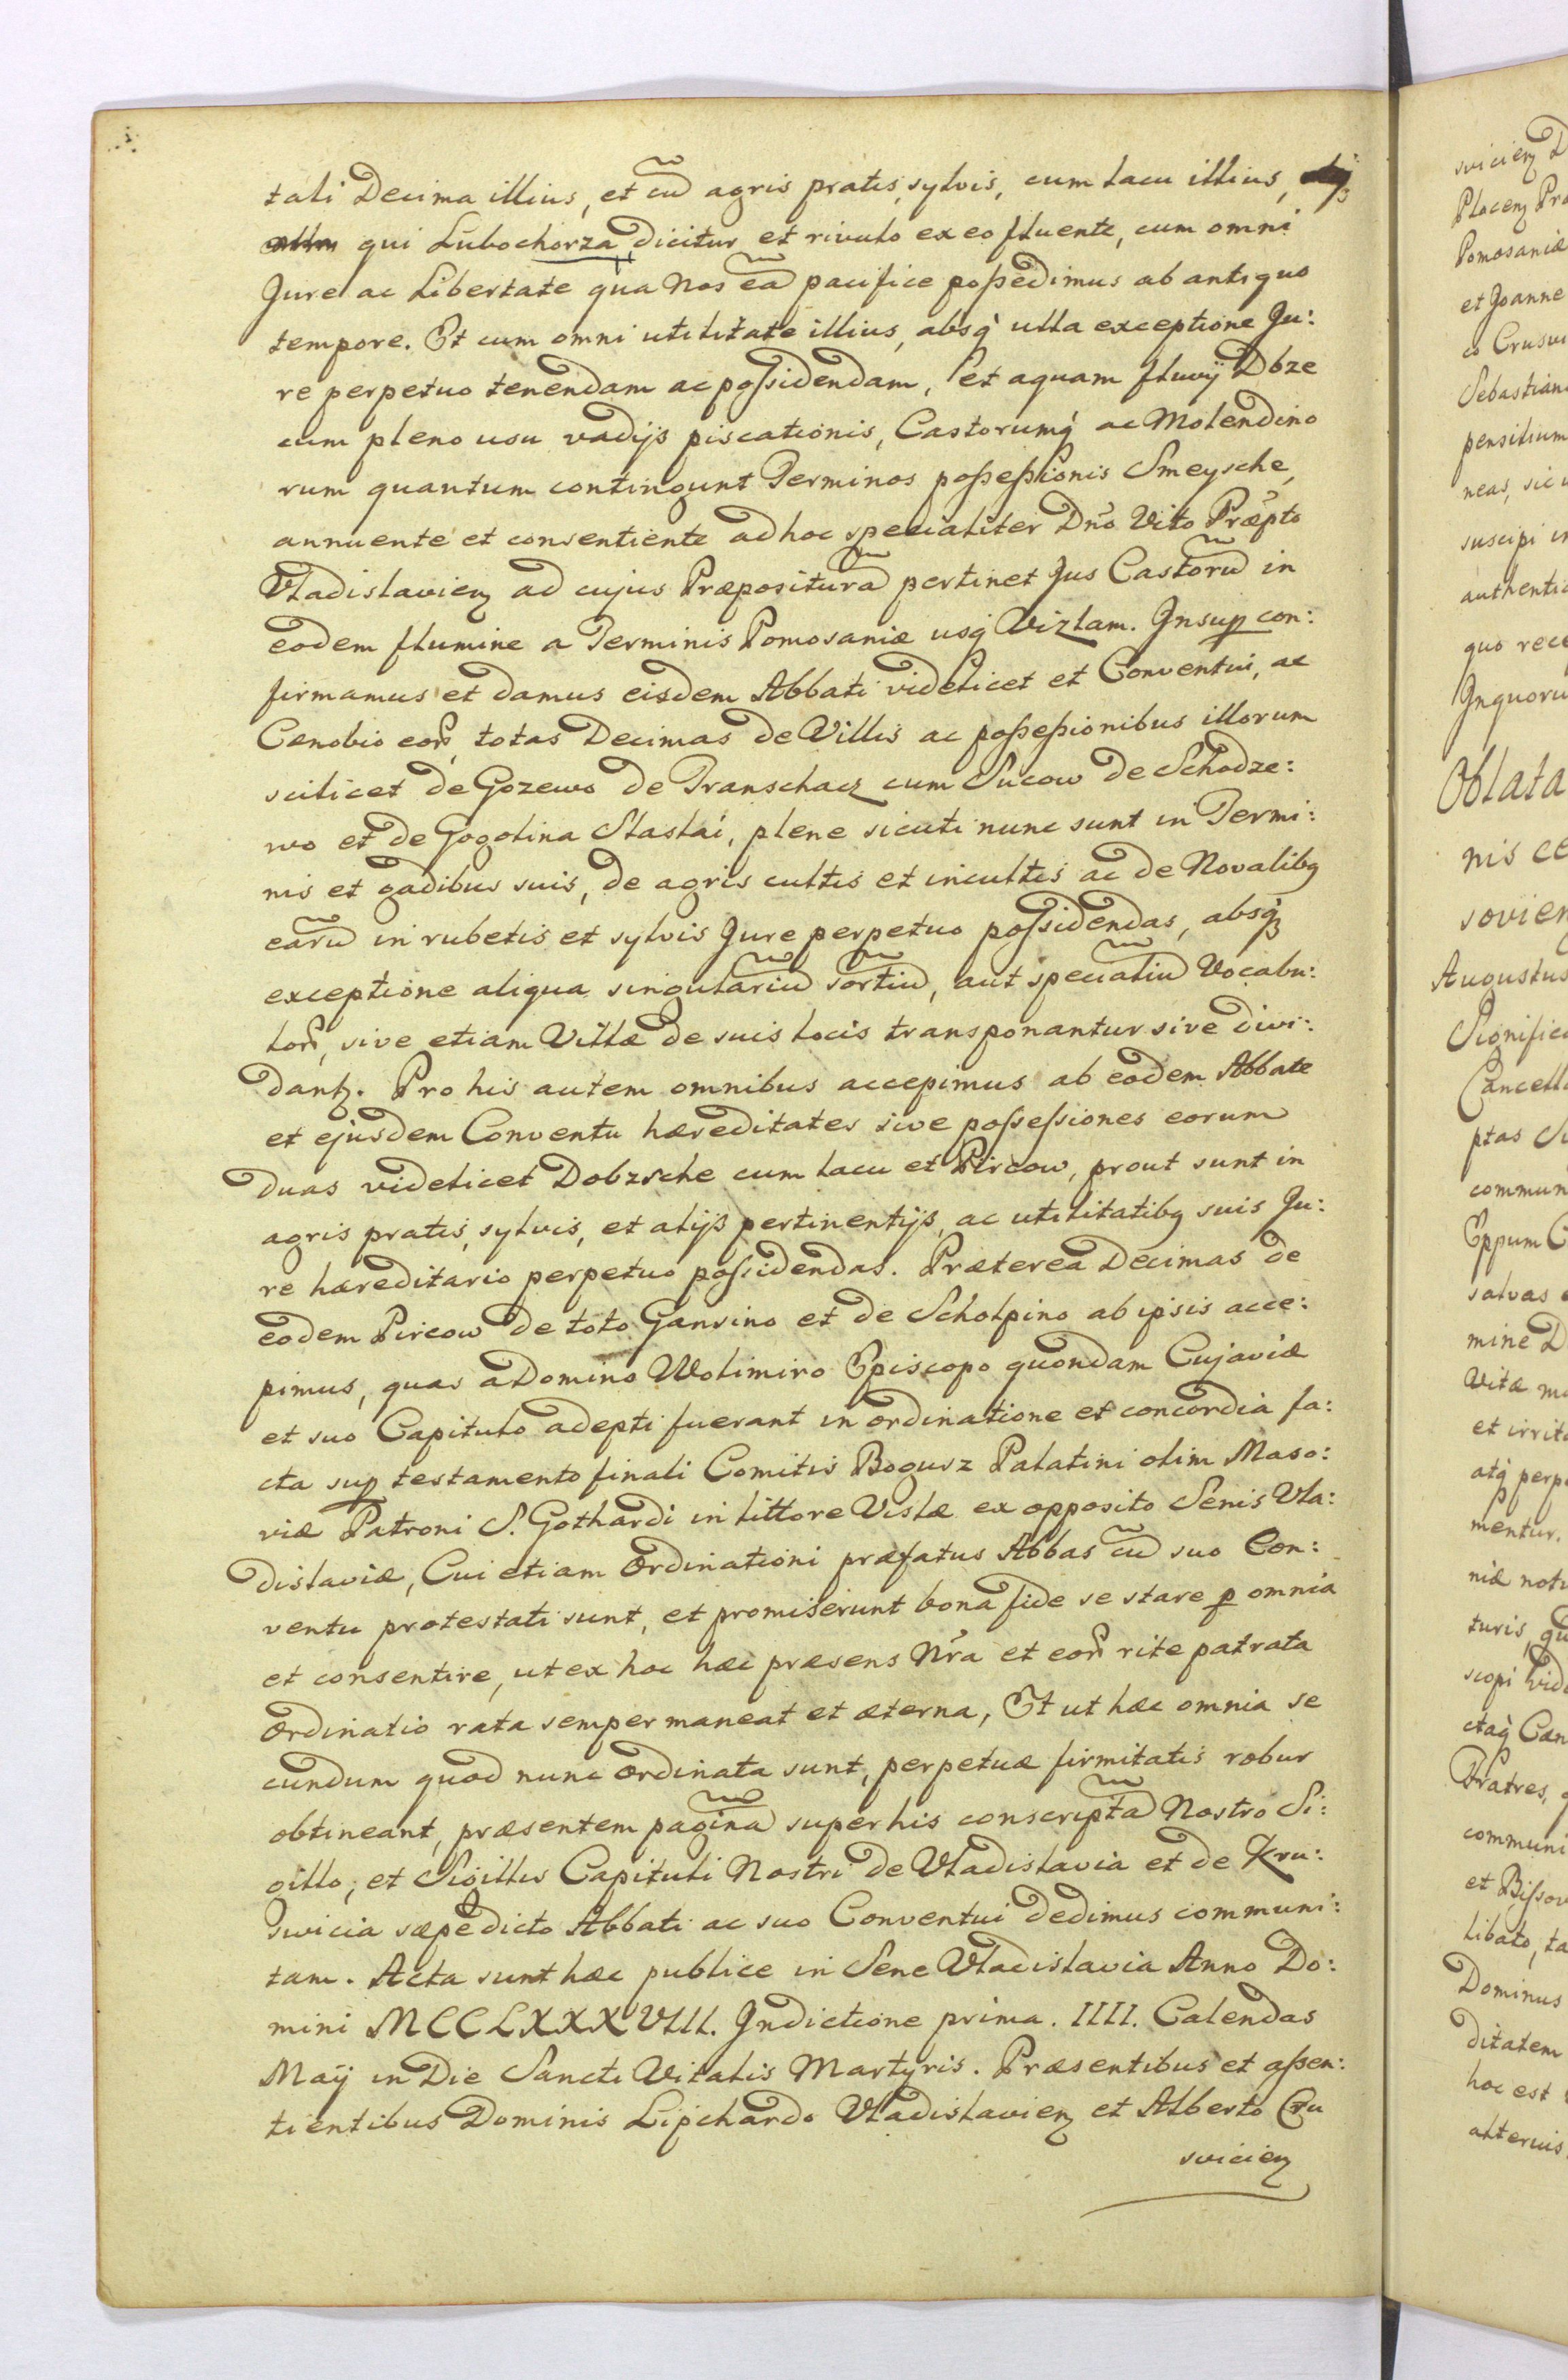 tali Decima illius, et cũ agris pratis, sylvis, cum lacu illius,
qui Lubochorza dicitur et rivulo ex eo fluente, cum omni
Jure ac Libertate qua Nos eã pacifice possedimus ab antiquo
tempore. Et cum omni utilitate illius, absq̀ ulla exceptione Ju:
re perpetuo tenendam ac possidendam, et aquam fluvij Dbze
cum pleno usu vadijs piscationis, Castorumq̀ ac Molendino
rum quantum contingunt Terminos possessionis Smeysche,
annuente et consentiente ad hoc specialiter Dño Vito Præpto
Vladislavieñ ad cujus Præpositurã pertinet Jus Castorũ in
eodem flumine a Terminis Pomosaniæ usq̀ Vizlam. Insuꝑ con:
firmamus et damus eisdem Abbati videlicet et Conventui, ac
Cænobio eoꝝ, totas Decimas de Villis ac possessionibus illorum
scilicet de Gozewo de Transchacz cum Sucow de Schodze:
wo et de Gogolina Slaslai, plene sicuti nunc sunt in Termi:
nis et gadibus suis, de agris cultis et incultis ac de Novalibꝫ
earũ in rubetis et sylvis Jure perpetuo possidendas, absqꝫ
exceptione aliqua singulariũ sortiũ, aut specialiũ Vocabu:
loꝝ, sive etiam Villæ de suis locis transponantur sive divi:
dantꝫ. Pro his autem omnibus accepimus ab eodem Abbate
et ejusdem Conventu hæreditates sive possessiones eorum
duas videlicet Dobzsche cum lacu et Pircow, prout sunt in
agris pratis, sylvis, et alijs pertinentijs, ac utilitatibꝫ suis Ju:
re hæreditario perpetuo possidendas. Præterea Decimas de
eodem Pircow de toto Gansino et de Scholpino ab ipsis acce:
pimus, quas a Domino Wolimiro Episcopo quondam Cujaviæ
et suo Capitulo adepti fuerant in ordinatione et concordia fa:
cta suꝑ testamento finali Comitis Bogusz Palatini olim Maso:
viæ Patroni S. Gothardi in littore Vislæ ex opposito Senis Vla:
dislaviæ, Cui etiam Ordinationi præfatus Abbas cũ suo Con:
ventu protestati sunt, et promiserunt bona fide se stare ꝑ omnia
et consentire, ut ex hoc hæc præsens Nr̃a et eoꝝ rite patrata
Ordinatio rata semper maneat et æterna, Et ut hæc omnia se
cundum quod nunc Ordinata sunt, perpetuæ firmitatis robur
obtineant, præsentem paginã super his conscriptã Nostro Si:
gillo, et Sigillis Capituli Nostri de Vladislavia et de Kru:
swicia sæpedicto Abbati ac suo Conventui dedimus communi:
tam. Acta sunt hæc publice in Sene Vladislavia Anno Do:
mini MCCLXXXVIII. Indictione prima. IIII. Calendas
Maij in Die Sancti Vitalis Martyris. Præsentibus et assen:
tientibus Dominis Lipchardo Vladislavieñ et Alberto Cru
svicieñ
Oblata
nis ce
sovien
Augustus
Significa
Cancella
ptas
commun
Eppum C
salvas
mine D
Vitæ
et irrita
atq̀ perp
mentur.
niæ notu
turis
scopi vide
ctaq̀ Cæn
Fratres,
communi
et Bissov
libato, ta
Dominus
ditatem
hoc est
alterius